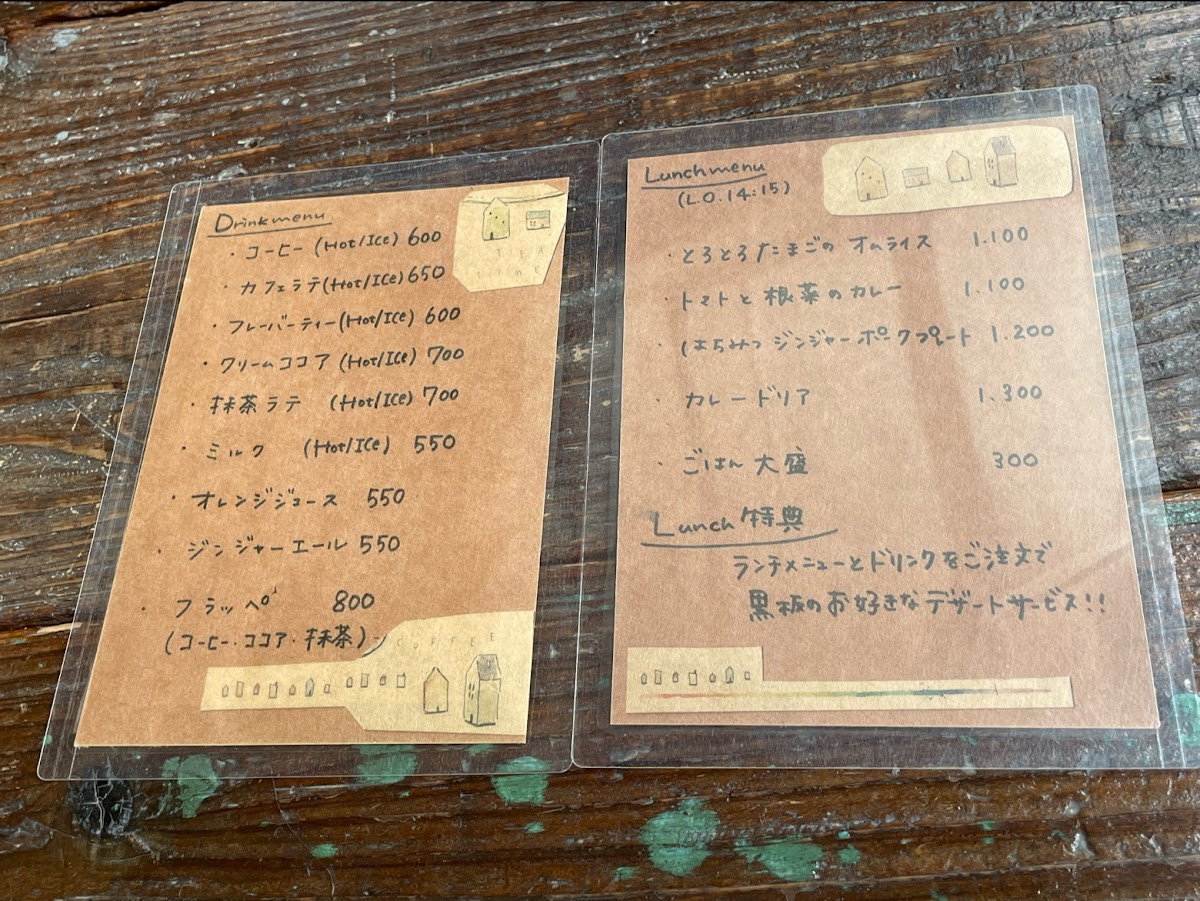 Drinkmenu
・コーヒー (Hot/Ice) 600
・カフェラテ(Hot/Ice) 650
・フレーバーティー(Hot/Ice) 600
・クリームココア (Hot/Ice) 700
・抹茶ラテ (Hot/Ice) 700
・ミルク (Hot/Ice) 550
・オレンジジュース 550
・ジンジャーエール 550
・フラッペ 800
(コーヒー・ココア・抹茶)
TEA
time
COFFEE
Lunchmenu
(L.O.14:15)
・とろとろたまごの オムライス 1.100
・トマトと根菜のカレー 1.100
・はちみつ ジンジャーポークプレート 1.200
・カレードリア 1.300
・ごはん大盛 300
Lunch特典
ランチメニューとドリンクをご注文で
黒板のお好きなデザートサービス!!